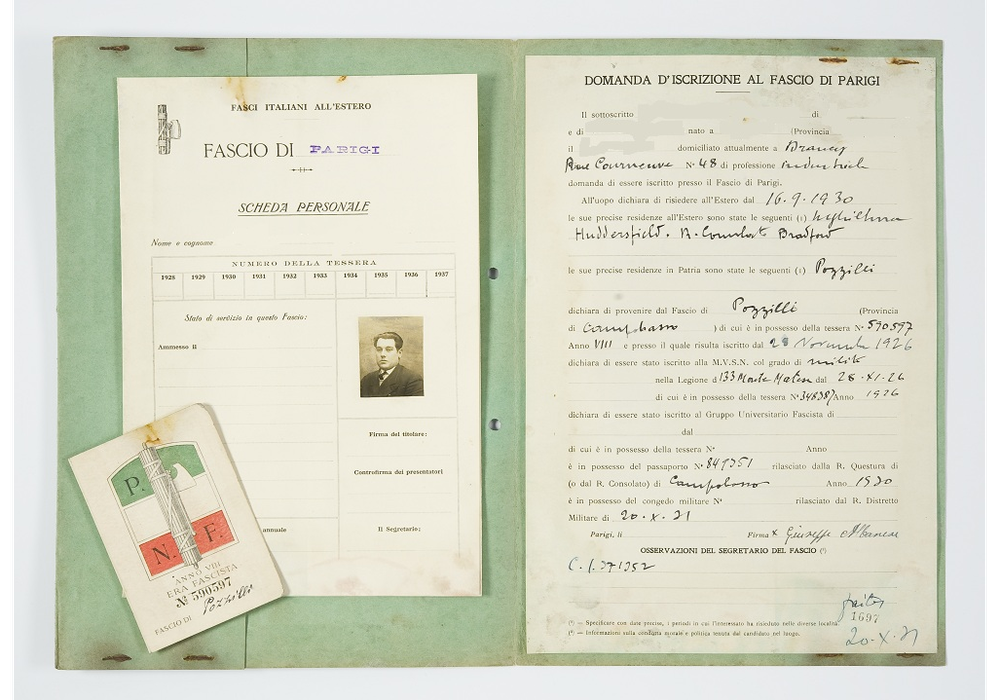 FASCI ITALIANI ALL'ESTERO
FASCIO DI PARIGI
SCHEDA PERSONALE
Nome e cognome
NUMERO DELLA TESSERA
1928 1929 1930 1931 1932 1933 1934 1935 1936 1937
Stato di servizio in questo Fascio:
Ammesso il
Firma del titolare:
Controfirma dei presentatori
annuale
Il Segretario:
P. N. F.
ANNO VIII
ERA FASCISTA
№ 590597
FASCIO DI Pozzilli
DOMANDA D'ISCRIZIONE AL FASCIO DI PARIGI
Il sottoscritto di
e di nato a (Provincia
il domiciliato attualmente a Drancy
Rue Courneuve N° 48 di professione
domanda di essere iscritto presso il Fascio di Parigi.
All'uopo dichiara di risiedere all'Estero dal 16.9.1930
le sue precise residenze all'Estero sono state le seguenti (1) Inghilterra
Huddersfield. R. Consolato Bradford
le sue precise residenze in Patria sono state le seguenti (1) Pozzilli
dichiara di provenire dal Fascio di Pozzilli (Provincia
di Campobasso ) di cui è in possesso della tessera N° 590597
Anno VIII e presso il quale risulta iscritto dal 28 Novembre 1926
dichiara di essere stato iscritto alla M.V.S.N. col grado di milite
nella Legione d 133 Monte Matese dal 28.XI.26
di cui è in possesso della tessera N° 348387 Anno 1926
dichiara di essere stato iscritto al Gruppo Universitario Fascista di
dal
di cui è in possesso della tessera N° Anno
è in possesso del passaporto N° 849351 rilasciato dalla R. Questura di
(o dal R. Consolato) di Campobasso Anno 1930
è in possesso del congedo militare N° rilasciato dal R. Distretto
Militare di 20.X.31
Parigi, li Firma x Giuseppe Albanese
OSSERVAZIONI DEL SEGRETARIO DEL FASCIO (²)
C.I. 371352
(¹) — Specificare con date precise, i periodi in cui l'interessato ha risieduto nelle diverse località.
(²) — Informazioni sulla condotta morale e politica tenuta dal candidato nel luogo.
1697
20.X.31